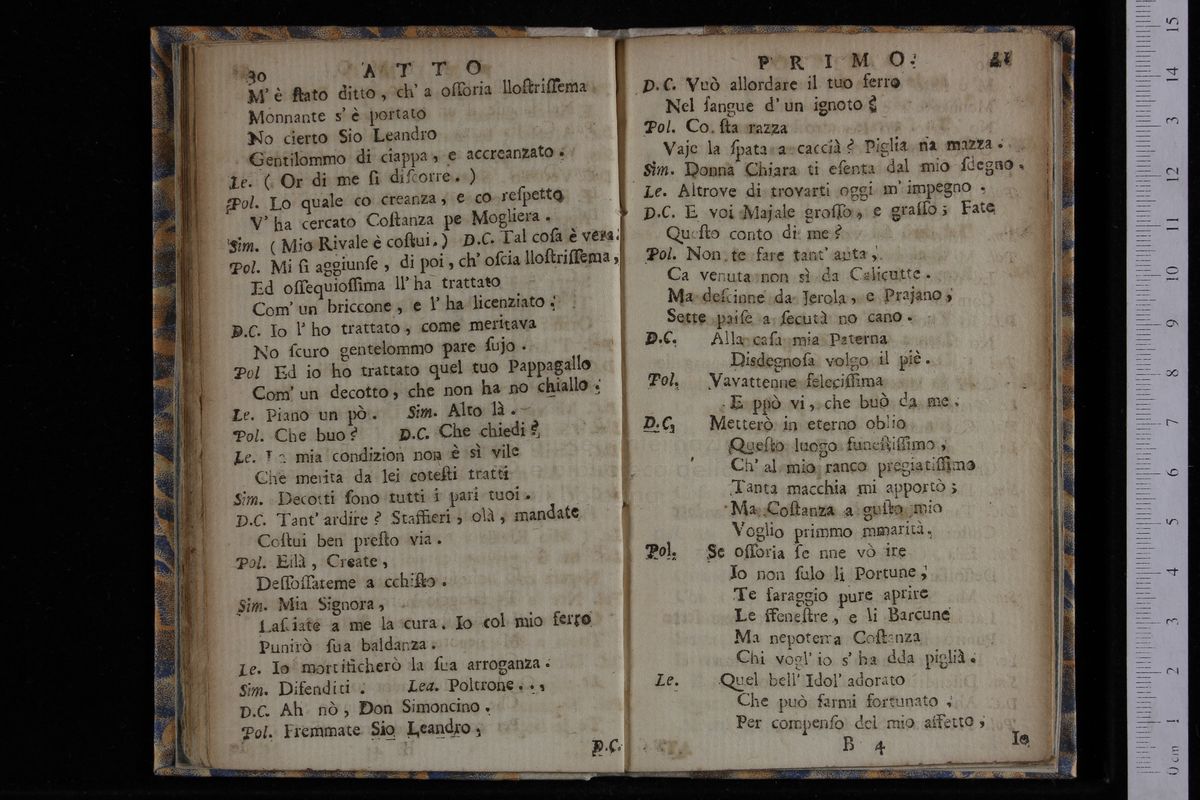 30 ATTO
M'è ſtato ditto, ch'a oſſoria lloſtriſſema
Monnante s'è portato
No cierto Sio Leandro
Gentilommo di ciappa, e accreanzato.
Le. (Or di me ſi diſcorre.)
Pol. Lo quale co creanza, e co reſpetto
V'ha cercato Coſtanza pe Mogliera.
Sim. (Mio Rivale è coſtui.) D.C. Tal coſa è vera.
Pol. Mi ſi aggiunſe, di poi, ch'oſcia lloſtriſſema,
Ed oſſequioſſima ll'ha trattato
Com'un briccone, e l'ha licenziato.
D.C. Io l'ho trattato, come meritava
No ſcuro gentelommo pare ſujo.
Pol Ed io ho trattato quel tuo Pappagallo
Com'un decotto, che non ha no chiallo.
Le. Piano un pò. Sim. Alto là.
Pol. Che buo? D.C. Che chiedi?
Le. La mia condizion non è sì vile
Che merita da lei coteſti tratti
Sim. Decotti ſono tutti i pari tuoi.
D.C. Tant'ardire? Staffieri, olà, mandate
Coſtui ben preſto via.
Pol. Eilà, Create,
Deſſoſſateme a cchiſto.
Sim. Mia Signora,
Laſciate a me la cura. Io col mio ferro
Punirò ſua baldanza.
Le. Io mortificherò la ſua arroganza.
Sim. Difenditi. Lea. Poltrone..,
D.C. Ah nò, Don Simoncino.
Pol. Fremmate Sio Leandro,
D.C.
PRIMO. 31
D.C. Vuò allordare il tuo ferro
Nel ſangue d'un ignoto?
Pol. Co. ſta razza
Vaje la ſpata a caccià? Piglia na mazza.
Sim. Donna Chiara ti eſenta dal mio ſdegno.
Le. Altrove di trovarti oggi m'impegno.
D.C. E voi Majale groſſo, e graſſo; Fate
Queſto conto di me?
Pol. Non te fare tant'auta,
Ca venuta non sì da Calicutte.
Ma deſcinne da Jerola, e Prajano;
Sette paiſe a ſecutà no cano.
D.C. Alla caſa mia Paterna
Diſdegnoſa volgo il piè.
Pol. Vavattenne feleciſſima
E ppò vi, che buò da me.
D.C. Metterò in eterno oblio
Queſto luogo funeſtiſſimo,
Ch'al mio ranco pregiatiſſimo
Tanta macchia mi apportò;
Ma Coſtanza a guſto mio
Voglio primmo mmarità.
Pol. Se oſſoria ſe nne vò ire
Io non ſulo li Portune,
Te ſaraggio pure aprire
Le ffeneſtre, e li Barcune
Ma nepoterra Coſtanza
Chi vogl'io s'ha dda piglià.
Le. Quel bell'Idol'adorato
Che può farmi fortunato
Per compenſo del mio affetto,
B 4 Io